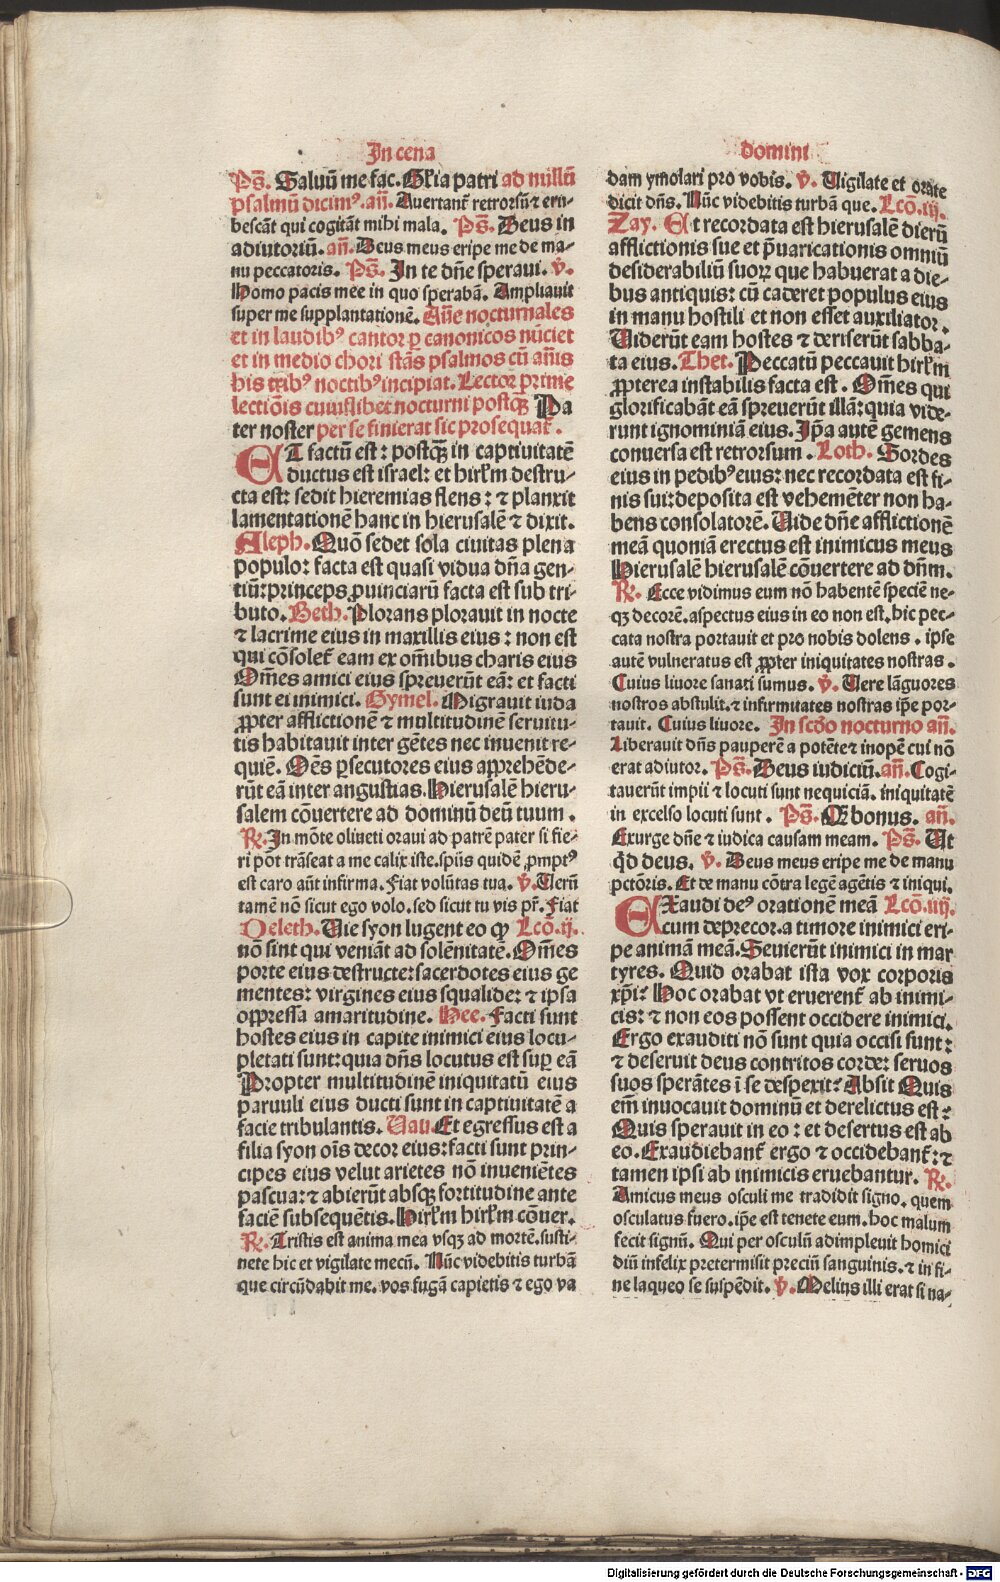 In cena
Ps̄. Saluū me fac. Gl'ia patri ad nullū
psalmū dicimꝰ. añ. Auertant̄ retrorsū ⁊ eru-
bescāt qui cogitāt mihi mala. Ps̄. Deus in
adiutoriū. añ. Deus meus eripe me de ma-
nu peccatoris. Ps̄. In te dñe speraui. v̄.
Homo pacis mee in quo sperabā. Ampliauit
super me supplantationē. Añe nocturnales
et in laudibꝰ cantor ꝑ canonicos nūciet
et in medio chori stās psalmos cū añis
his tribꝰ noctibꝰ incipiat. Lector prime
lectiōis cuiuslibet nocturni postꝙ̄ Pa
ter noster per se finierat sic prosequat̄.
ET factū est: postꝙ̄ in captiuitatē
ductus est israel: et hirl'm destru-
cta est: sedit hieremias flens: ⁊ planxit
lamentationē hanc in hierusalē ⁊ dixit.
Aleph. Quō sedet sola ciuitas plena
populo: facta est quasi vidua dña gen-
tiū: princeps ꝓuinciarū facta est sub tri-
buto. Beth. Plorans plorauit in nocte
⁊ lacrime eius in maxillis eius: non est
qui cōsolet̄ eam ex om̄ibus charis eius
Om̄es amici eius spreuerūt eā: et facti
sunt ei inimici. Gymel. Migrauit iuda
ꝓpter afflictionē ⁊ multitudinē seruitu-
tis habitauit inter gētes nec inuenit re-
quiē. Oēs ꝑsecutores eius apprehēde-
rūt eā inter angustias. Hierusalē hieru-
salem cōuertere ad dominū deū tuum.
R̄. In mōte oliueti oraui ad patrē pater si fie-
ri pōt trāseat a me calix iste. spūs quidē ꝓmptꝰ
est caro aūt infirma. Fiat volūtas tua. v̄. Uerū
tamē nō sicut ego volo. sed sicut tu vis pr̄. Fiat
Deleth. Uie syon lugent eo ꝙ Lcō. ij.
nō sint qui veniāt ad solēnitatē. Om̄es
porte eius destructe: sacerdotes eius ge
mentes: virgines eius squalide: ⁊ ipsa
oppressa amaritudine. Hee. Facti sunt
hostes eius in capite inimici eius locu-
pletati sunt: quia dñs locutus est suꝑ eā
Propter multitudinē iniquitatū eius
paruuli eius ducti sunt in captiuitatē a
facie tribulantis. Uau. Et egressus est a
filia syon oīs decor eius: facti sunt prin-
cipes eius velut arietes nō inueniētes
pascua: ⁊ abierūt absqꝫ fortitudine ante
faciē subsequētis. Hirl'm hirl'm cōuer.
R̄. Tristis est anima mea vsqꝫ ad mortē. susti-
nete hic et vigilate mecū. Nūc videbitis turbā
que circūdabit me. vos fugā capietis ⁊ ego va
domini
dam ymolari pro vobis. v̄. Uigilate et orate
dicit dñs. Nūc videbitis turbā que. Lcō. iij.
Zay. Et recordata est hierusalē dierū
afflictionis sue et p̄uaricationis omniū
desiderabiliū suoꝝ que habuerat a die-
bus antiquis: cū caderet populus eius
in manu hostili et non esset auxiliator.
Uiderūt eam hostes ⁊ deriserūt sabba-
ta eius. Thet. Peccatū peccauit hirl'm
ꝓpterea instabilis facta est. Om̄es qui
glorificabāt eā spreuerūt illā: quia vide-
runt ignominiā eius. Ip̄a autē gemens
conuersa est retrorsum. Loth. Sordes
eius in pedibꝰ eius: nec recordata est fi-
nis sui: deposita est vehemēter non ha-
bens consolatorē. Uide dñe afflictionē
meā quoniā erectus est inimicus meus
Hierusalē hierusalē cōuertere ad dñm.
R̄. Ecce vidimus eum nō habentē speciē ne-
qꝫ decorē. aspectus eius in eo non est. hic pec-
cata nostra portauit et pro nobis dolens. ipse
autē vulneratus est ꝓpter iniquitates nostras.
Cuius liuore sanati sumus. v̄. Uere lāguores
nostros abstulit. ⁊ infirmitates nostras ip̄e por-
tauit. Cuius liuore. In scd̄o nocturno añ.
Liberauit dñs pauperē a potēte ⁊ inopē cui nō
erat adiutor. Ps̄. Deus iudiciū. añ. Cogi-
tauerūt impii ⁊ locuti sunt nequiciā. iniquitatē
in excelso locuti sunt. Ps̄. Q̄ bonus. añ.
Exurge dñe ⁊ iudica causam meam. Ps̄. Ut
qd̄ deus. v̄. Deus meus eripe me de manu
pctōris. Et de manu cōtra legē agētis ⁊ iniqui.
EXaudi deꝰ orationē meā Lcō. iiij.
cum deprecor. a timore inimici eri-
pe animā meā. Seuierūt inimici in mar
tyres. Quid orabat ista vox corporis
xp̄i? Hoc orabat vt eruerent̄ ab inimi-
cis: ⁊ non eos possent occidere inimici.
Ergo exauditi nō sunt quia occisi sunt:
⁊ deseruit deus contritos corde: seruos
suos sperātes ī se despexit? Absit Quis
em̄ inuocauit dominū et derelictus est?
Quis sperauit in eo: et desertus est ab
eo. Exaudiebant̄ ergo ⁊ occidebant̄: ⁊
tamen ipsi ab inimicis eruebantur. R̄.
Amicus meus osculi me tradidit signo. quem
osculatus fuero. ip̄e est tenete eum. hoc malum
fecit signū. Qui per osculū adimpleuit homici
diū infelix pretermisit preciū sanguinis. ⁊ in fi-
ne laqueo se suspēdit. v̄. Melius illi erat si na-
Digitalisierung gefördert durch die Deutsche Forschungsgemeinschaft - DFG